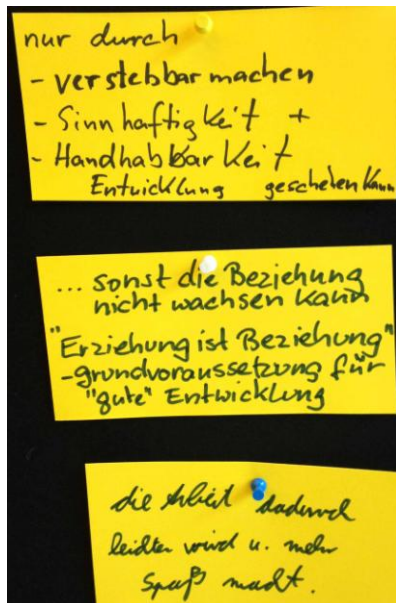 nur durch
- verstehbar machen
- Sinnhaftigkeit +
- Handhabbarkeit
Entwicklung geschehen kann
... sonst die Beziehung
nicht wachsen kann
"Erziehung ist Beziehung"
- grundvoraussetzung für
"gute" Entwicklung
die Arbeit dadurch
leichter wird u. mehr
Spaß macht.